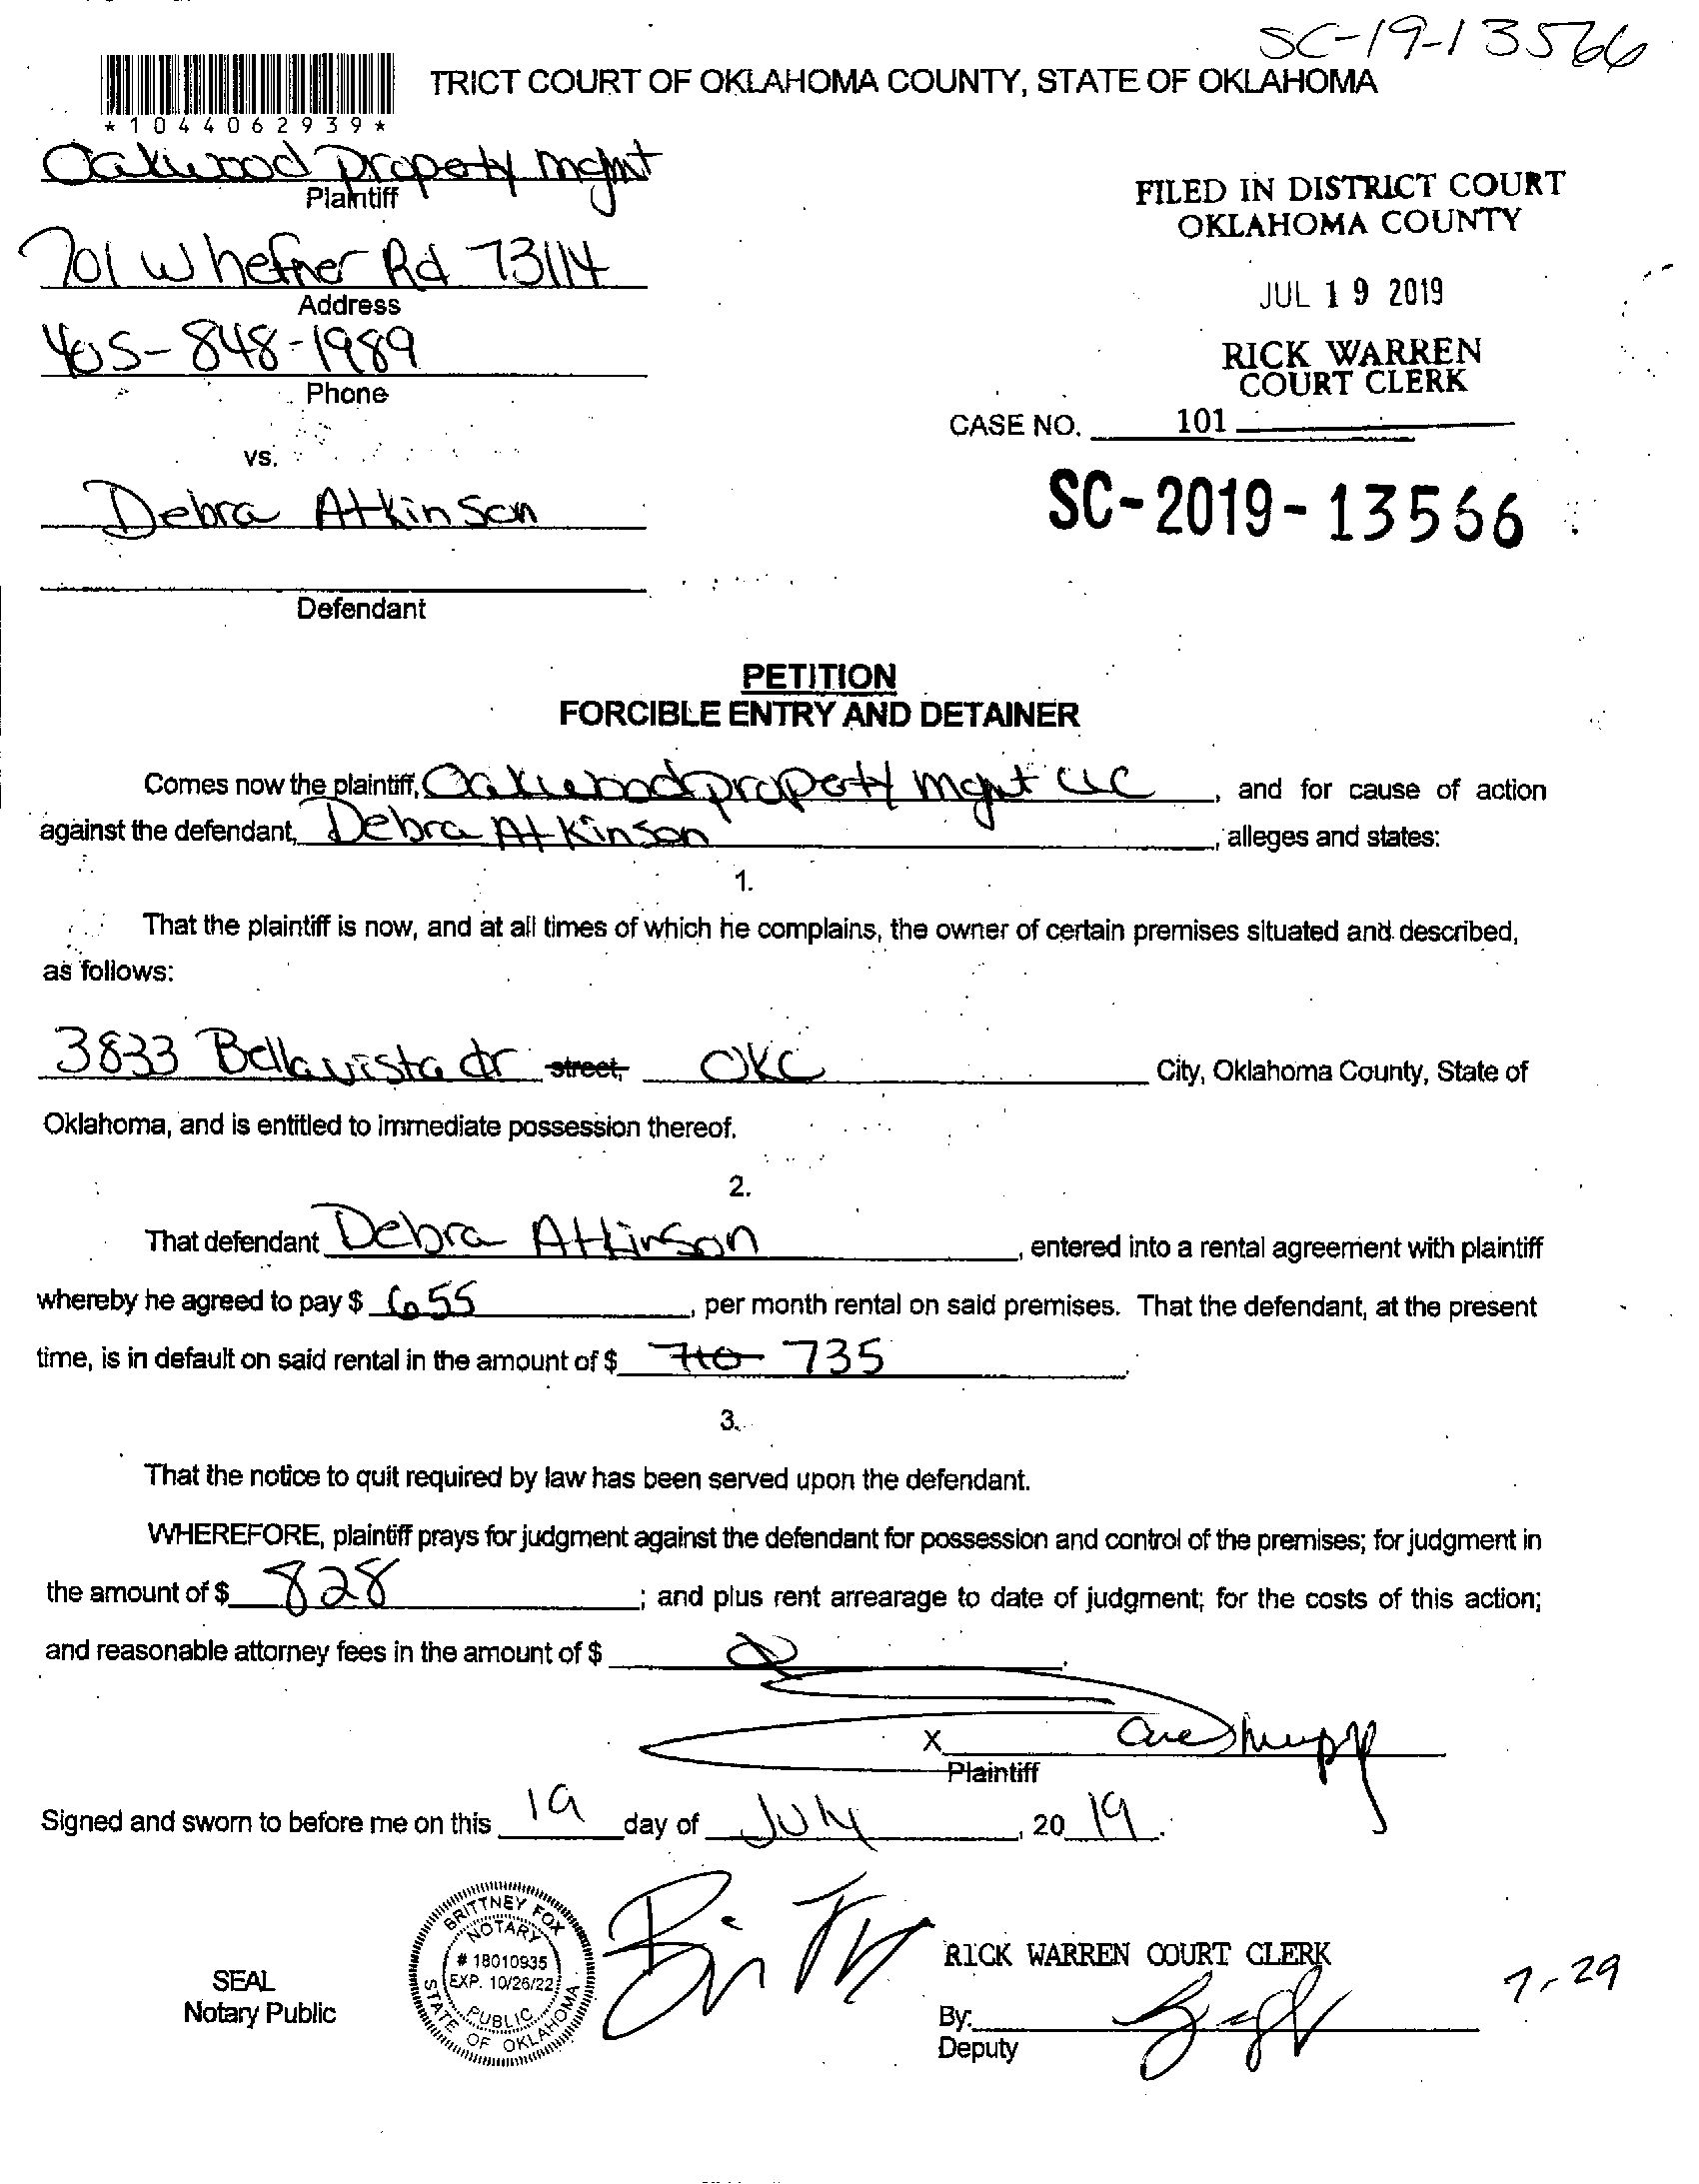 SC-19-13566
TRICT COURT OF OKLAHOMA COUNTY, STATE OF OKLAHOMA
* 1 0 4 4 0 6 2 9 3 9 *
Oakwood property mgmt
Plaintiff
FILED IN DISTRICT COURT
OKLAHOMA COUNTY
701 W hefner Rd 73114
Address
JUL 19 2019
405-848-1989
Phone
RICK WARREN
COURT CLERK
CASE NO. 101
vs.
Debra Atkinson
SC-2019-13566
Defendant
PETITION
FORCIBLE ENTRY AND DETAINER
Comes now the plaintiff, Oakwood property mgmt LLC, and for cause of action
against the defendant, Debra Atkinson, alleges and states:
1.
That the plaintiff is now, and at all times of which he complains, the owner of certain premises situated and described,
as follows:
3833 Bellavista dr street, OKC City, Oklahoma County, State of
Oklahoma, and is entitled to immediate possession thereof.
2.
That defendant Debra Atkinson, entered into a rental agreement with plaintiff
whereby he agreed to pay $ 655, per month rental on said premises. That the defendant, at the present
time, is in default on said rental in the amount of $ 735.
3.
That the notice to quit required by law has been served upon the defendant.
WHEREFORE, plaintiff prays for judgment against the defendant for possession and control of the premises; for judgment in
the amount of $ 828; and plus rent arrearage to date of judgment; for the costs of this action;
and reasonable attorney fees in the amount of $
X
Plaintiff
Signed and sworn to before me on this 19 day of July, 2019.
BRITTNEY FOX
NOTARY
# 18010935
EXP. 10/26/22
PUBLIC
STATE OF OKLAHOMA
SEAL
Notary Public
RICK WARREN COURT CLERK
7-29
By:
Deputy